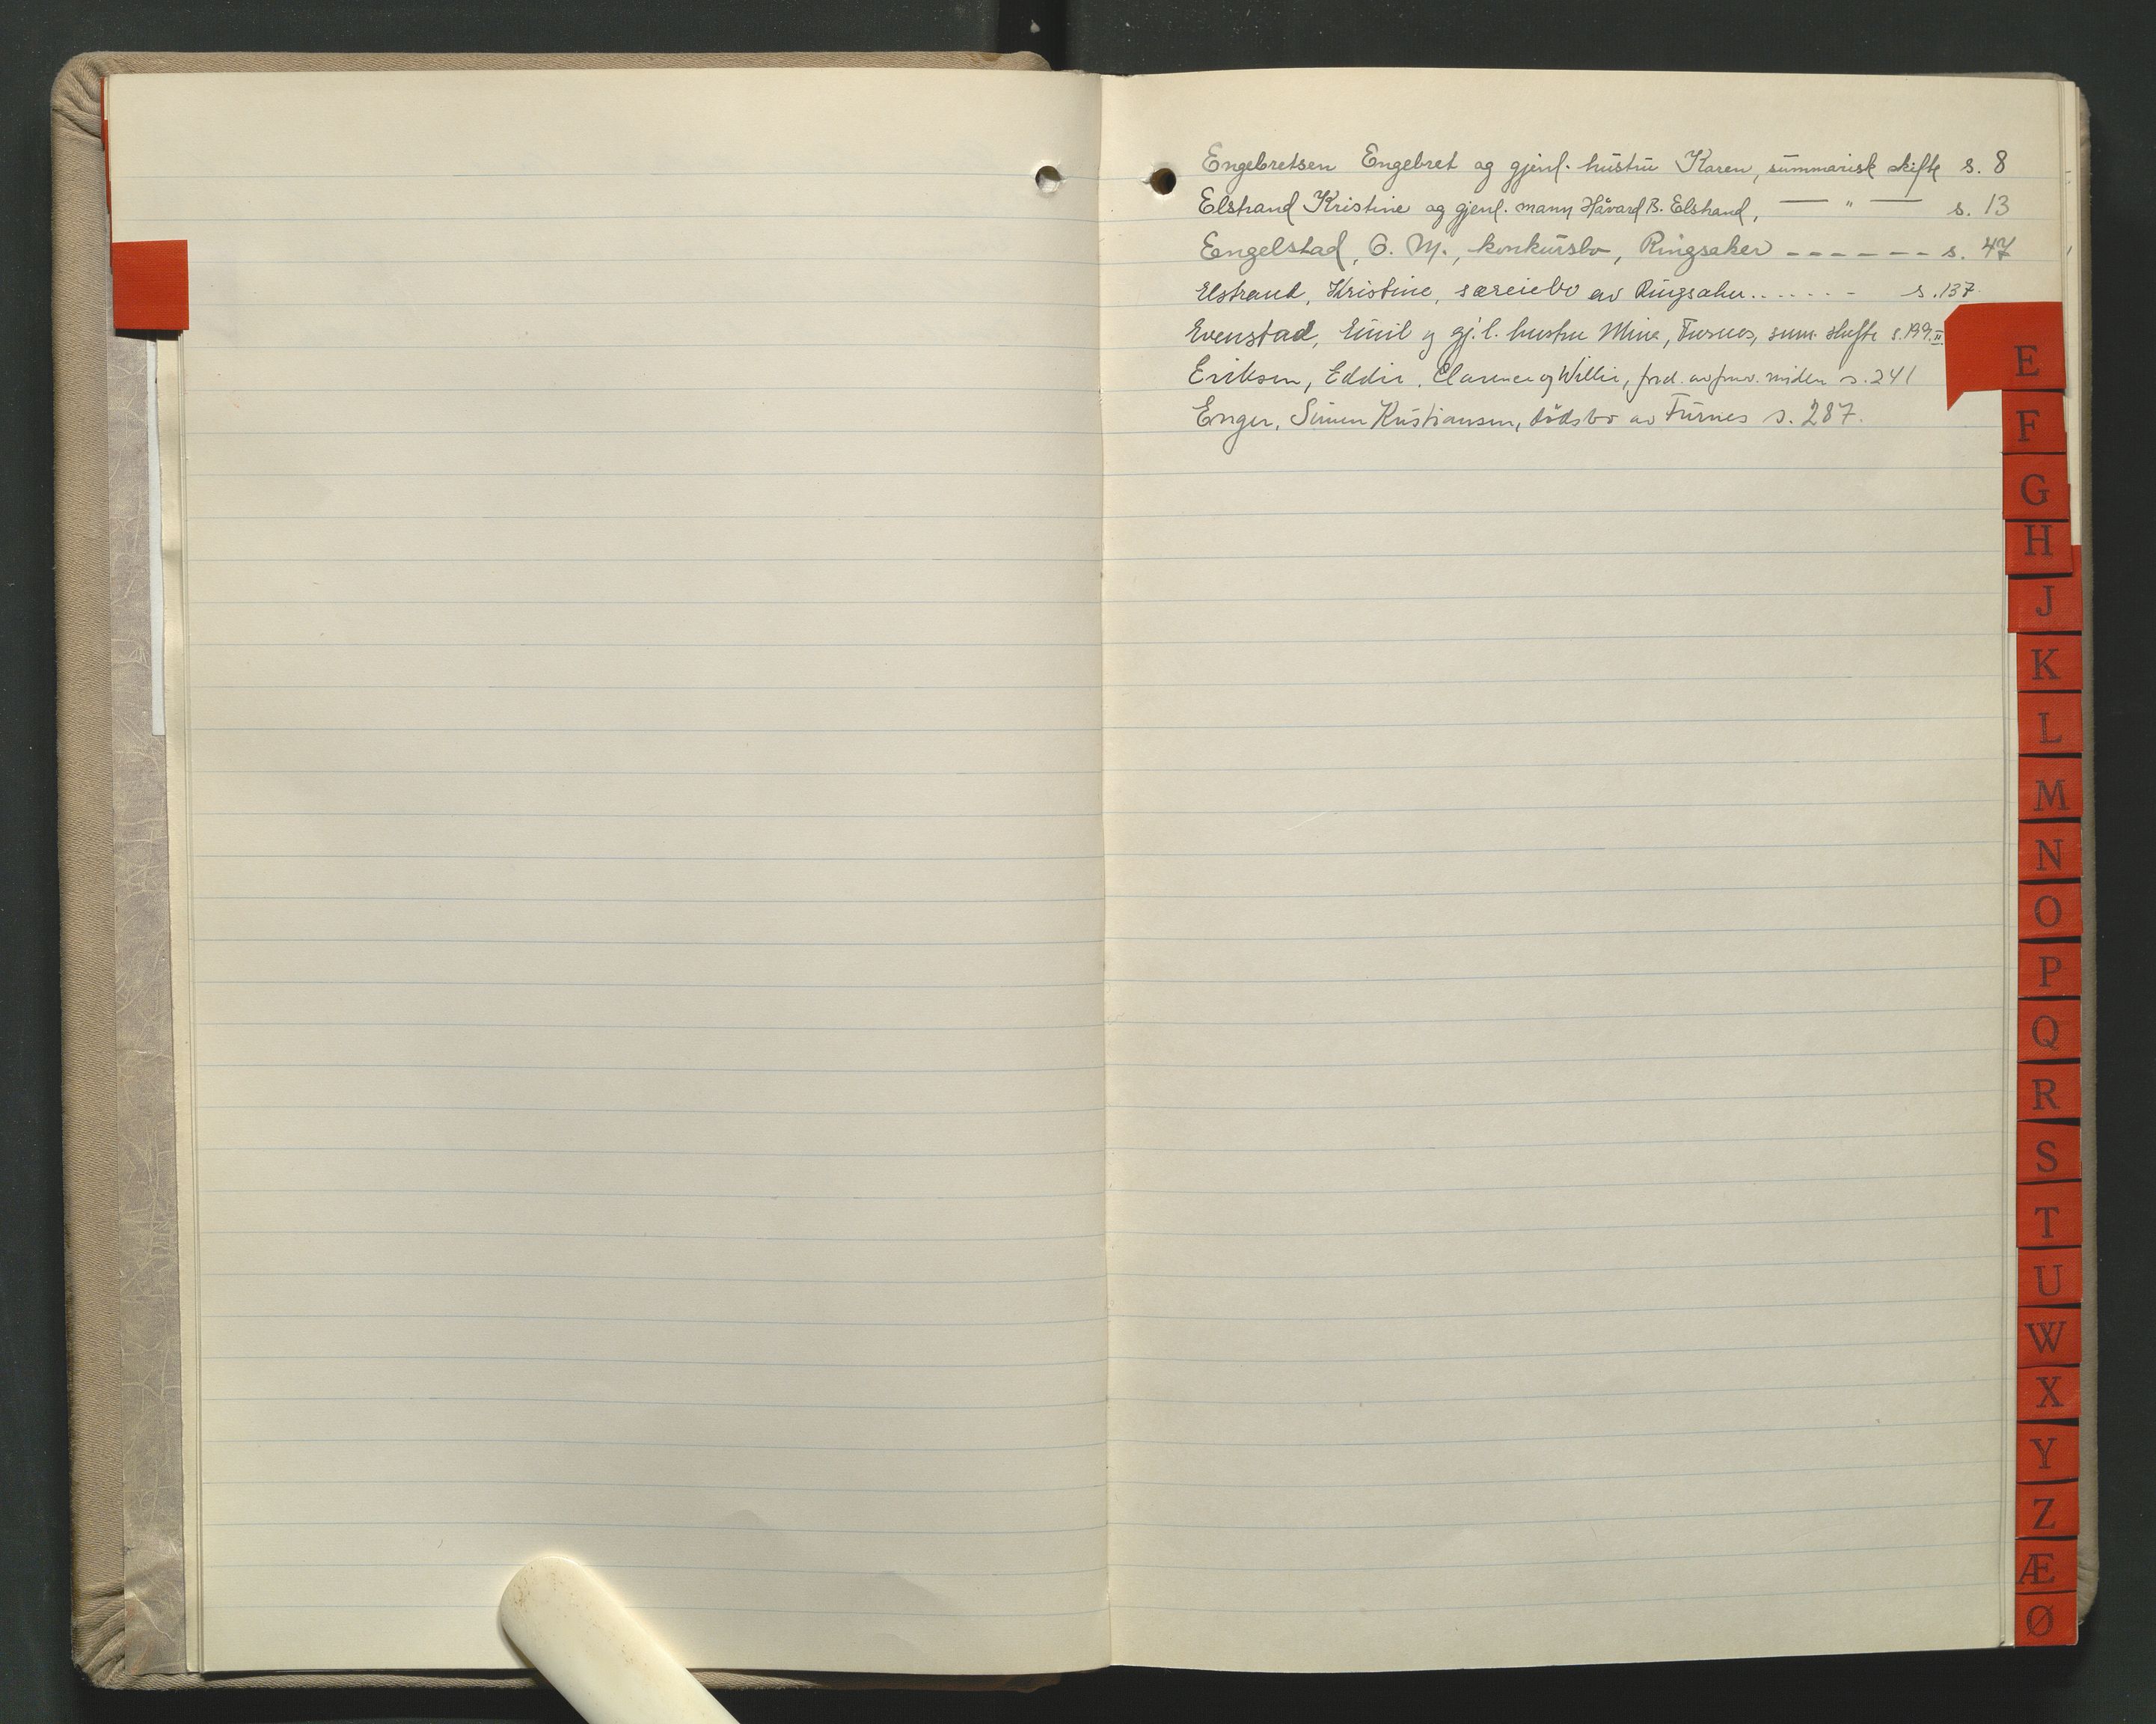 Engebretsen Engebret og gjenl. hustru Karen, summarisk skifte s. 8
Elstrand Kristine og gjenl. mann Håvard B. Elstrand, — " — s. 13
Engelstad, O. M., konkursbo, Ringsaker - - - - - - - s. 47
Elstrand, Kristine, særeiebo av Ringsaker . . . . . . - s. 137.
Evenstad, Emil og gj. l. hustru Mina, Furnes, sum. skifte s. 199. II
Eriksen, Eddie, Clarence og Willie, ford. av midler s. 241
Enger, Simen Kristiansen, dödsbo av Furnes s. 287.
E
F
G
H
J
K
L
M
N
O
P
Q
R
S
T
U
W
X
Y
Z
Æ
Ø